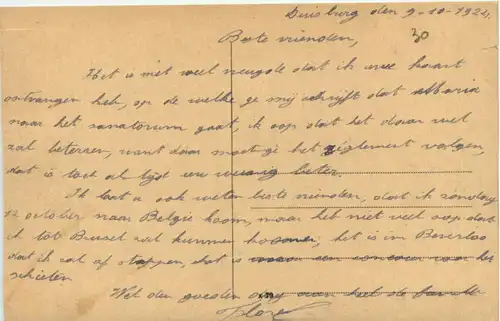 Duisburg den 9-10-1924
30
Beste vrienden,
Het is met veel vreugde dat ik uwe kaart
ontvangen heb, op de welke ge mij schrijft dat Maria
naar het sanatorium gaat, ik oop dat het daar wel
zal beteren, want daar moet ge het reglement volgen,
dat is toch al tijd een weinig beter.
Ik laat u ook weten beste vrienden, dat ik zondag
12 october naar Belgie koom, maar het niet veel oop dat
ik tot Brussel zal kunnen koomen, het is in Beverloo
dat ik zal af stappen, dat is voor een concour voor het
schieten
Met den goeden dag aan heel de famille